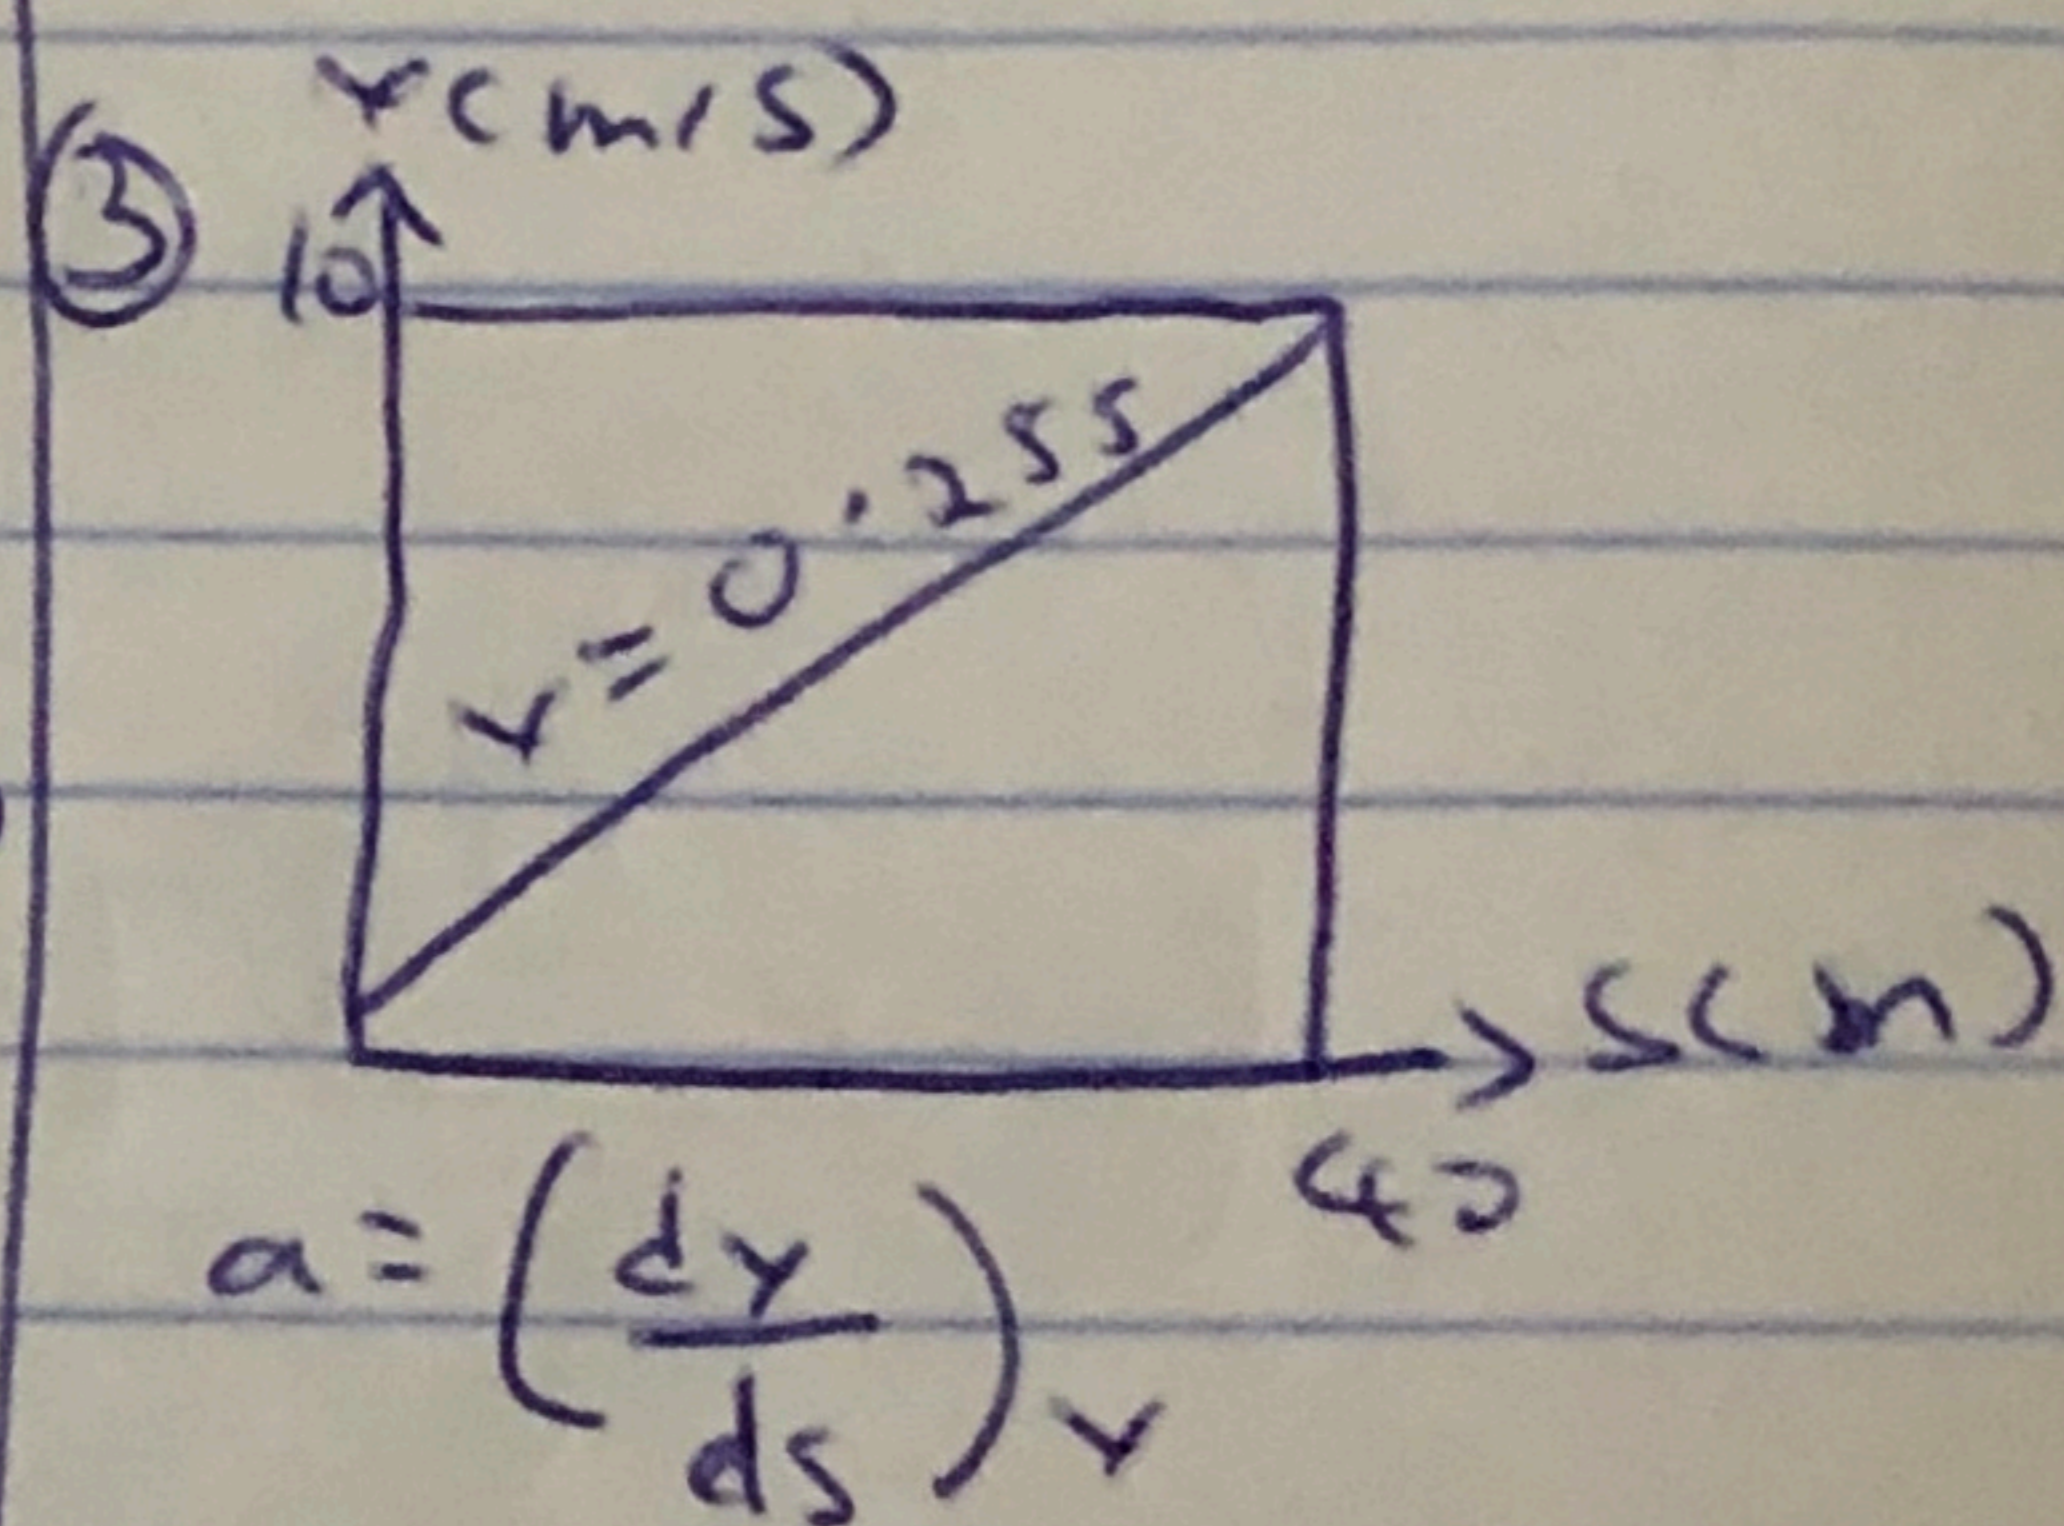 ③ v(m/s)
10
v = 0.25s
s(m)
40
a = (dv/ds)v